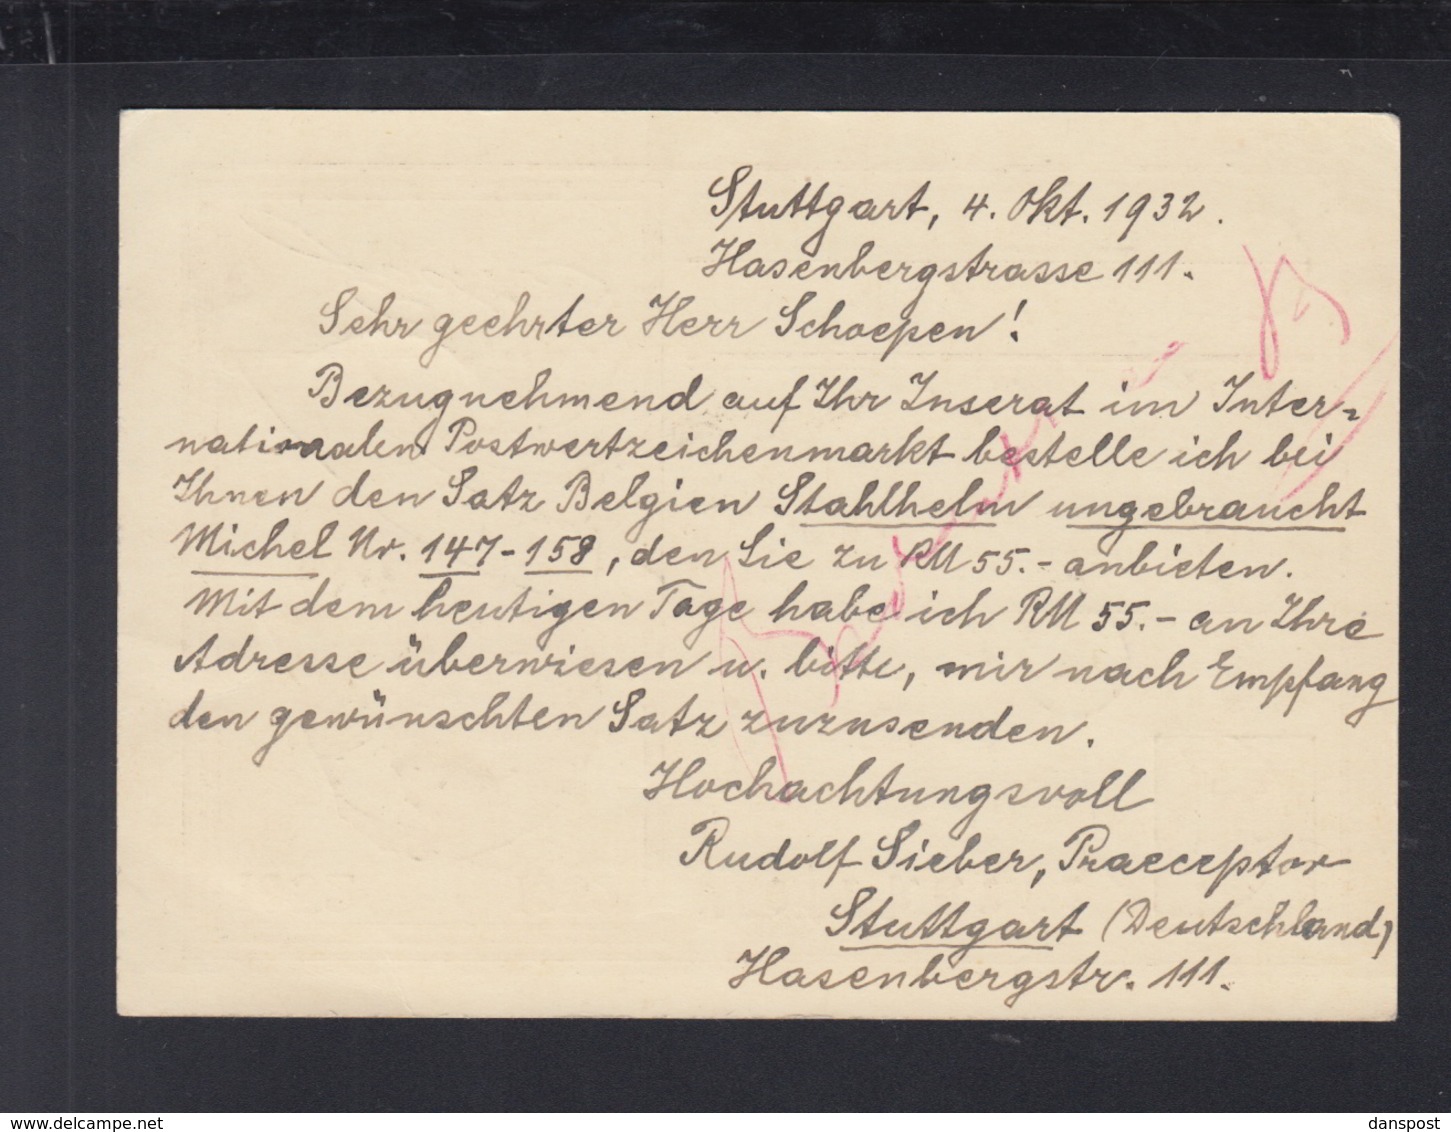 Stuttgart, 4. Okt. 1932.
Hasenbergstrasse 111.
Sehr geehrter Herr Schoepen!
Bezugnehmend auf Ihr Inserat im Inter-
nationalen Postwertzeichenmarkt bestelle ich bei
Ihnen den Satz Belgien Stahlhelm ungebraucht
Michel Nr. 147-158, den Sie zu RM 55.- anbieten.
Mit dem heutigen Tage habe ich RM 55.- an Ihre
Adresse überwiesen u. bitte, mir nach Empfang
den gewünschten Satz zuzusenden.
Hochachtungsvoll
Rudolf Sieber, Praeceptor
Stuttgart (Deutschland)
Hasenbergstr. 111.
delcampe.net
danspost